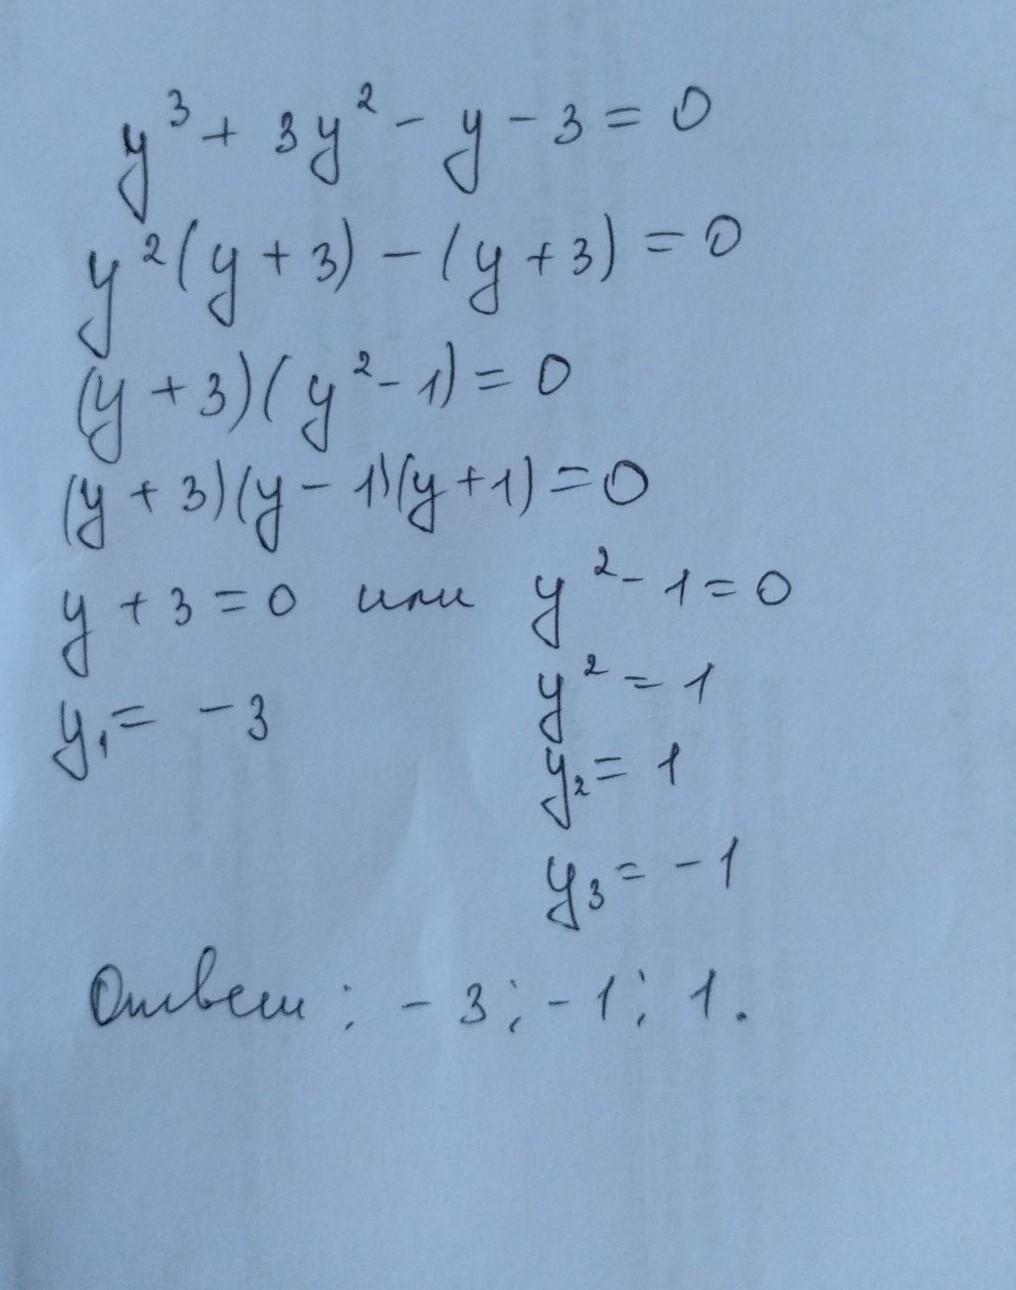 y³ + 3y² - y - 3 = 0
y²(y + 3) - (y + 3) = 0
(y + 3)(y² - 1) = 0
(y + 3)(y - 1)(y + 1) = 0
y + 3 = 0 или y² - 1 = 0
y₁ = -3 y² = 1
y₂ = 1
y₃ = -1
Ответ: -3; -1; 1.